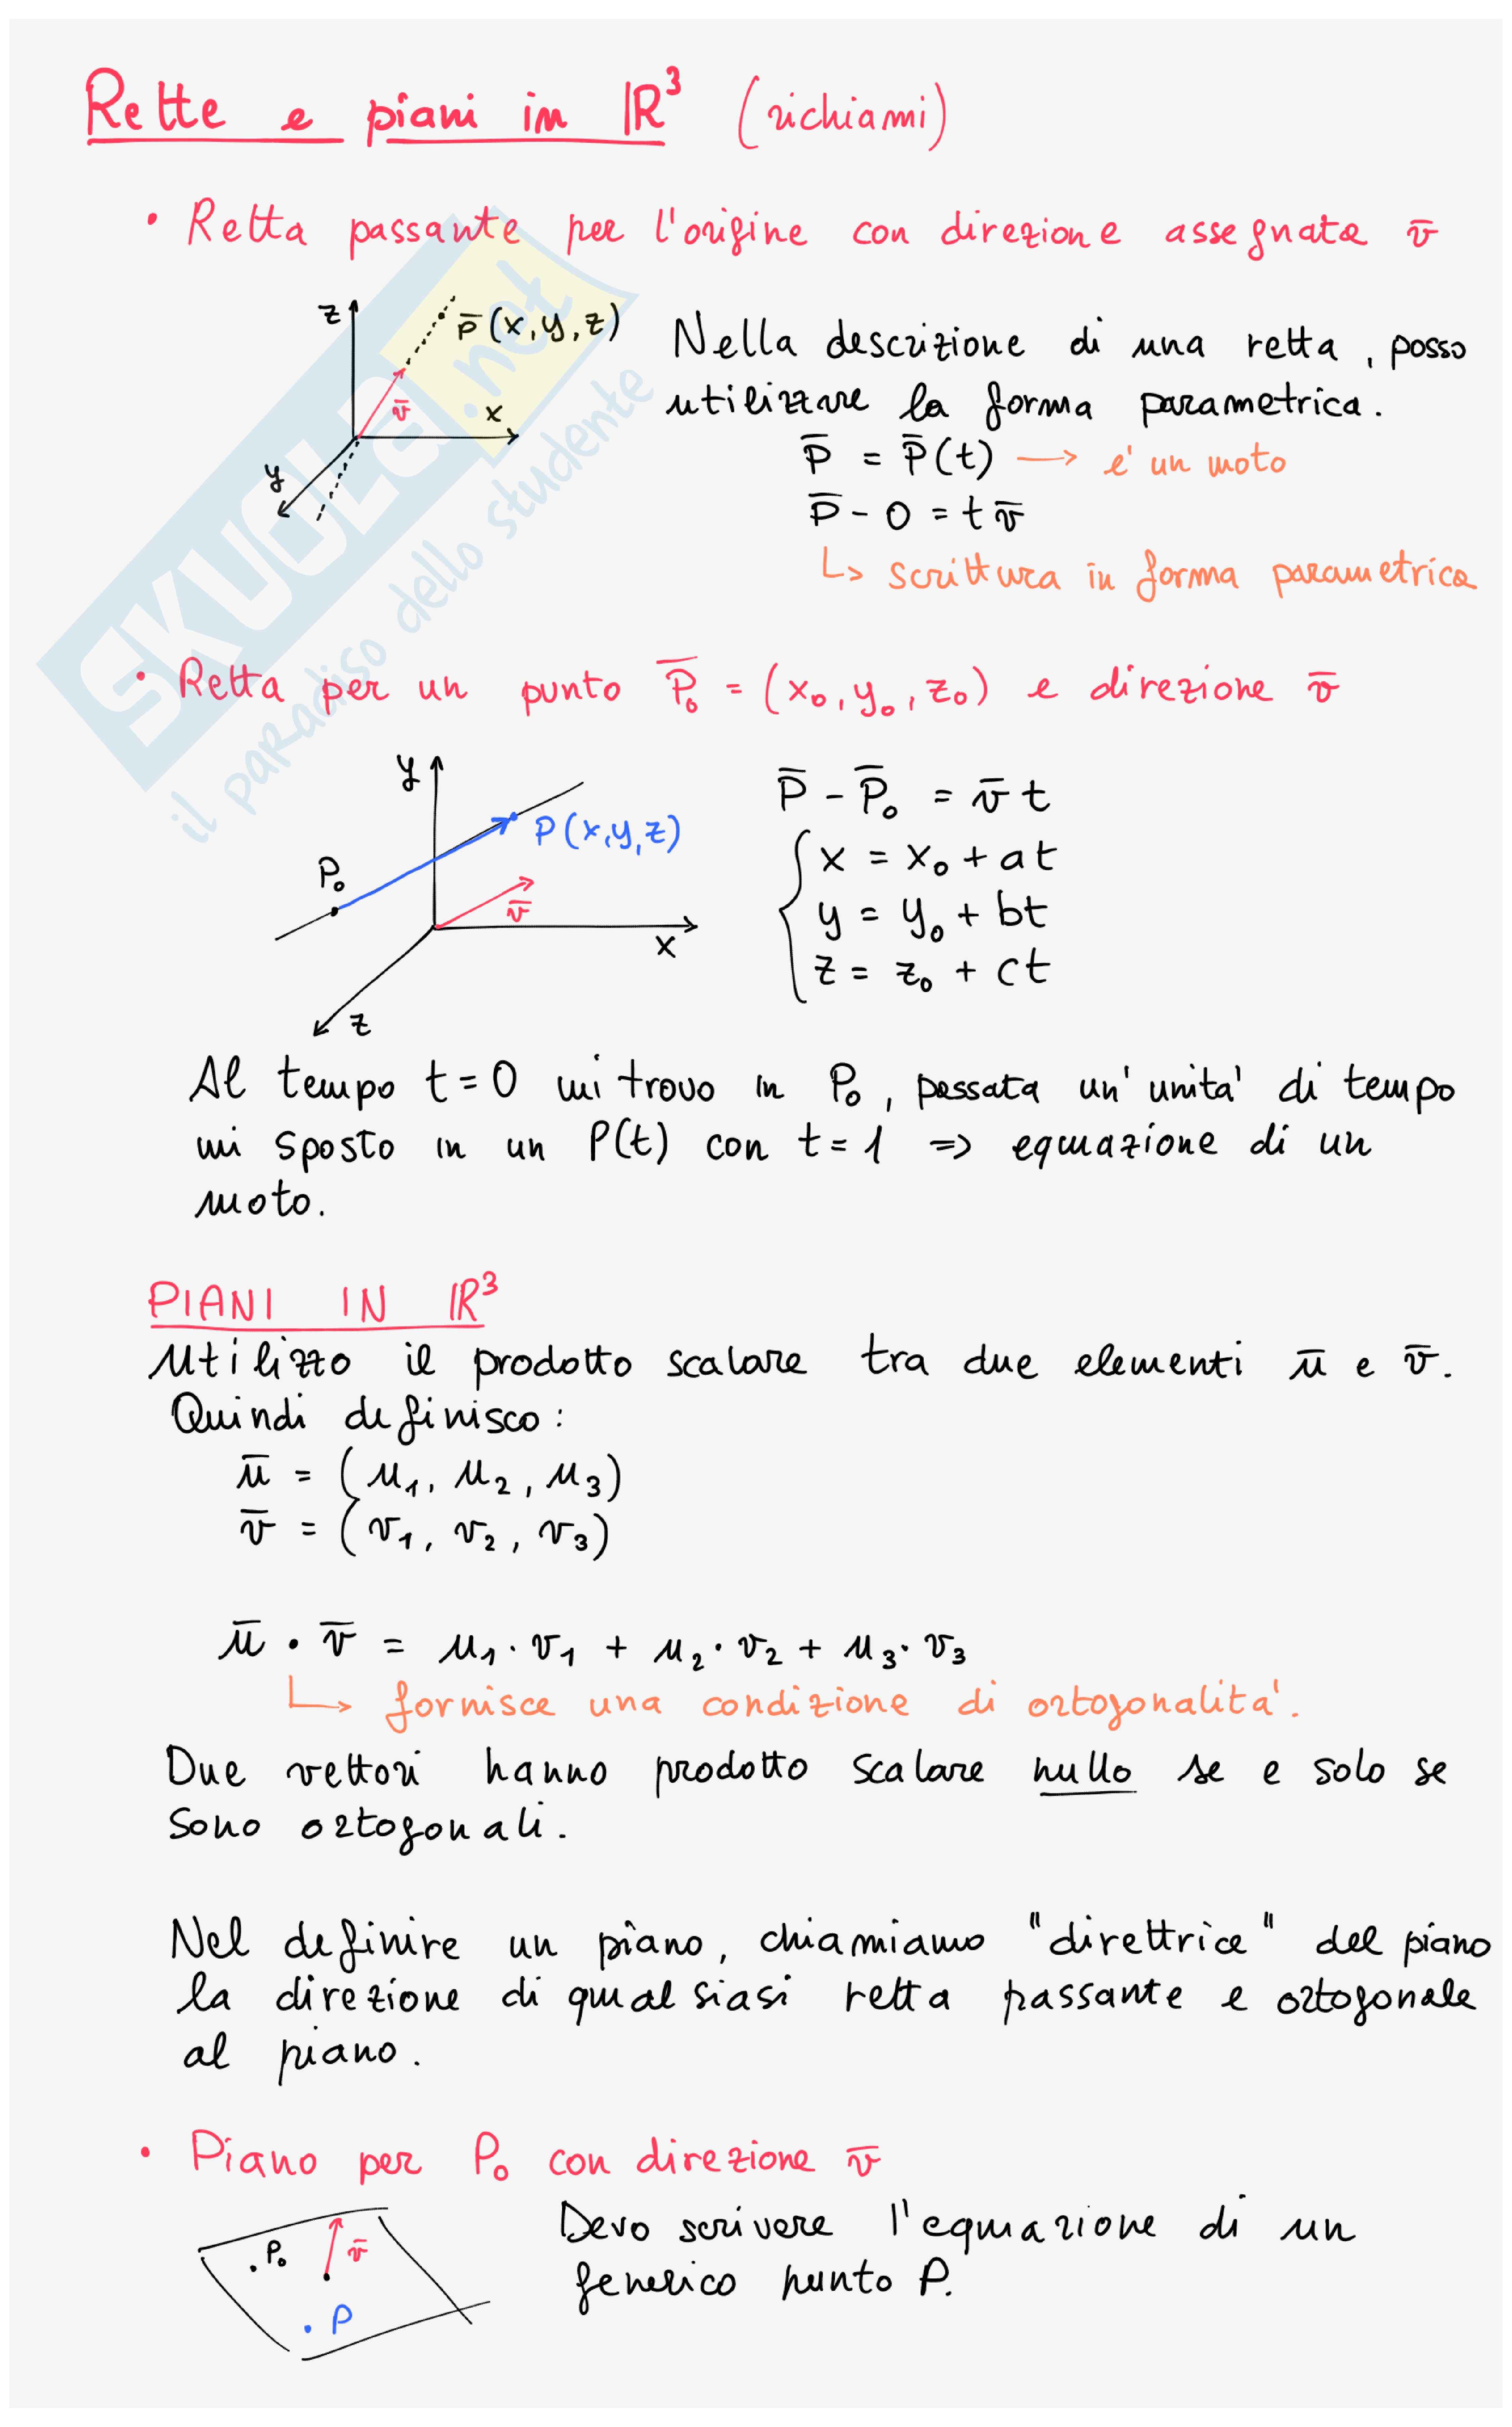 Rette e piani in ℝ³ (richiami)
• Retta passante per l'origine con direzione assegnata v̄
z
P̄(x,y,z)
v̄
x
y
Nella descrizione di una retta, posso
utilizzare la forma parametrica.
P̄ = P̄(t) → e' un moto
P̄ - O = t v̄
↳ scrittura in forma parametrica
SKUOLA.net
il paradiso dello studente
• Retta per un punto P̄₀ = (x₀, y₀, z₀) e direzione v̄
y
P(x,y,z)
P₀
v̄
x
z
P̄ - P̄₀ = v̄ t
x = x₀ + at
y = y₀ + bt
z = z₀ + ct
Al tempo t=0 mi trovo in P₀, passata un'unita' di tempo
mi sposto in un P(t) con t=1 => equazione di un
moto.
PIANI IN ℝ³
Utilizzo il prodotto scalare tra due elementi ū e v̄.
Quindi definisco:
ū = (u₁, u₂, u₃)
v̄ = (v₁, v₂, v₃)
ū · v̄ = u₁·v₁ + u₂·v₂ + u₃·v₃
↳ fornisce una condizione di ortogonalita'.
Due vettori hanno prodotto scalare nullo se e solo se
sono ortogonali.
Nel definire un piano, chiamiamo "direttrice" del piano
la direzione di qualsiasi retta passante e ortogonale
al piano.
• Piano per P₀ con direzione v̄
P₀
v̄
P
Devo scrivere l'equazione di un
generico punto P.